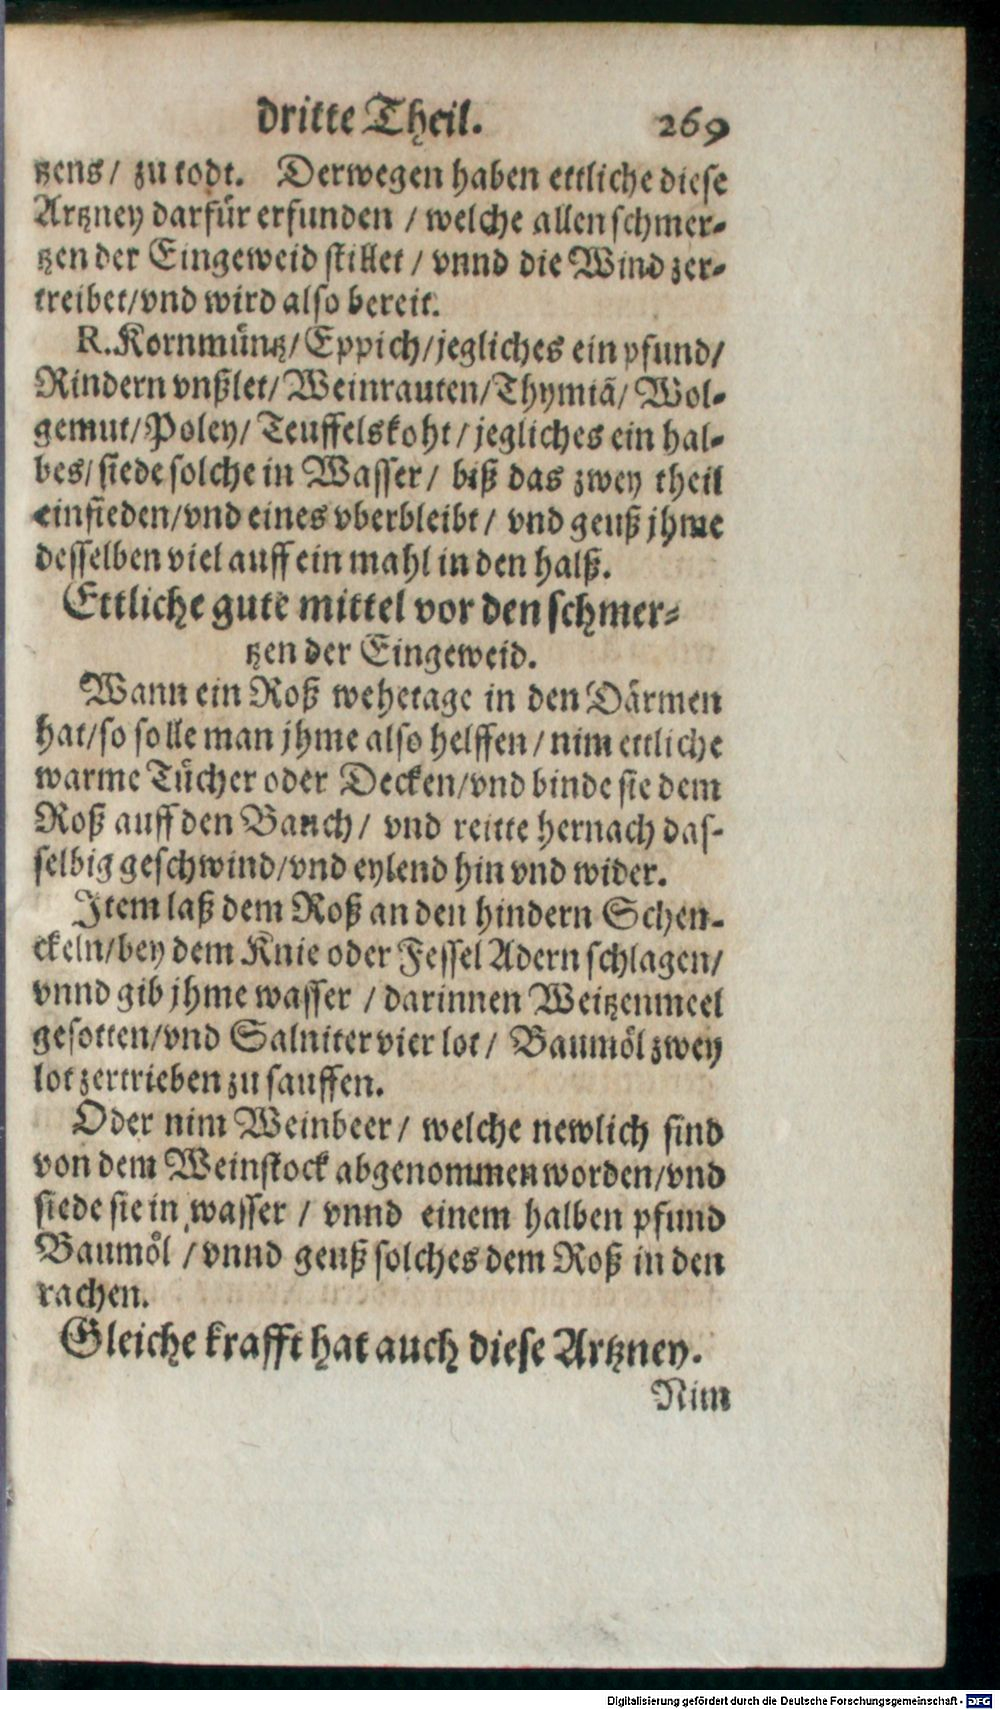 dritte Theil. 269
tzens / zu todt. Derwegen haben ettliche diese
Artzney darfuͤr erfunden / welche allen schmer-
tzen der Eingeweid stillet / vnnd die Wind zer-
treibet/vnd wird also bereit.
R. Kornmuͤntz/Eppich/jegliches ein pfund/
Rindern vnßlet/Weinrauten/Thymiã/Wol-
gemut/Poley/Teuffelskoht / jegliches ein hal-
bes/siede solche in Wasser / biß das zwey theil
einsieden/vnd eines vberbleibt / vnd geuß jhme
desselben viel auff ein mahl in den halß.
Ettliche gute mittel vor den schmer-
tzen der Eingeweid.
Wann ein Roß wehetage in den Daͤrmen
hat/so solle man jhme also helffen / nim ettliche
warme Tuͤcher oder Decken/vnd binde sie dem
Roß auff den Bauch / vnd reitte hernach das-
selbig geschwind/vnd eylend hin vnd wider.
Item laß dem Roß an den hindern Schen-
ckeln/bey dem Knie oder Fessel Adern schlagen/
vnnd gib jhme wasser / darinnen Weitzenmeel
gesotten/vnd Salniter vier lot / Baumoͤl zwey
lot zertrieben zu sauffen.
Oder nim Weinbeer / welche newlich sind
von dem Weinstock abgenommen worden/vnd
siede sie in wasser / vnnd einem halben pfund
Baumoͤl / vnnd geuß solches dem Roß in den
rachen.
Gleiche krafft hat auch diese Artzney.
Nim
Digitalisierung gefördert durch die Deutsche Forschungsgemeinschaft - DFG